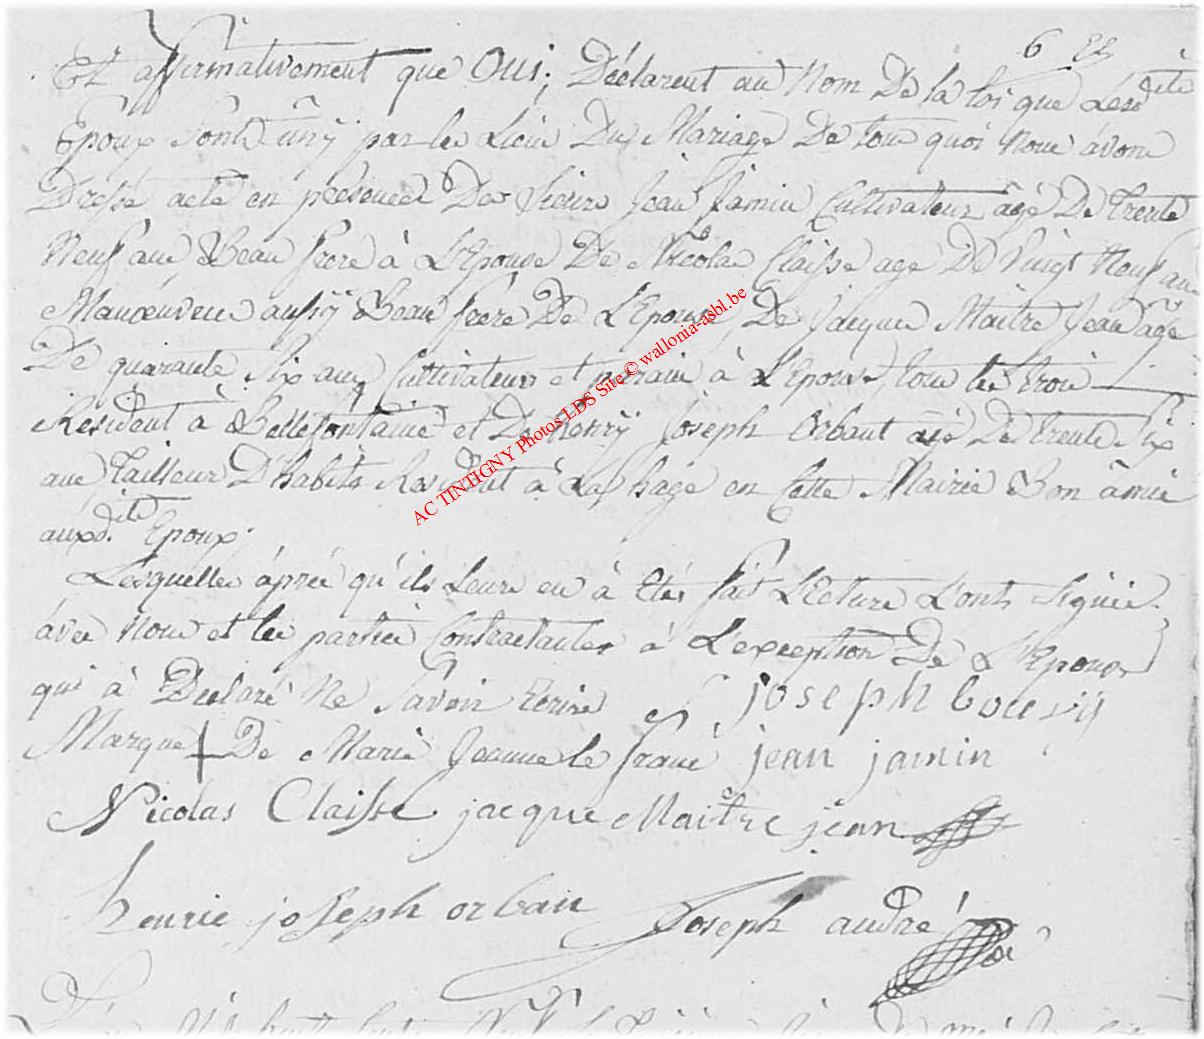 6 Et
Et affirmativement que Oui; Déclarent au Nom De la loi que Lesdite
Epoux Sont ûnÿ par le Lien Du Mariage De tou quoi Nous âvons
Dressé acte en présence Des Sieurs Jean Jamin Cultivateur âgé De Trente
Neuf ans Beau frère à L'Epouse De Nicolas Claisse age De Vingt Neuf an
Manoeuvre aussÿ Beau frère De L'Epouse, De Jacque Maitre Jean agé
De quarante Six ans Cultivateur et parain à L'Epouse, tous les trois
Résidant à Bellefontaine et De henrÿ Joseph Orbant agé De trente Six
ans Tailleur D'habits Résidant à La hage en Cette Mairie Bon âmie
auxdite Epoux.
Lesquelles âprée qu'ils Leurs en à Etés fait LEcture L'onts Signée
âvec Nous et les parties Contractantes à L'exception De L'Epouse
qui à Déclaré Ne Savoir Ecrire joseph bouvÿ
Marque De Marie Jeanne le frane jean jamin
Nicolas Claisse jacque Maitre jean
henrie joseph orban Joseph andré
AC TINTIGNY Photos LDS Site © wallonia-asbl.be